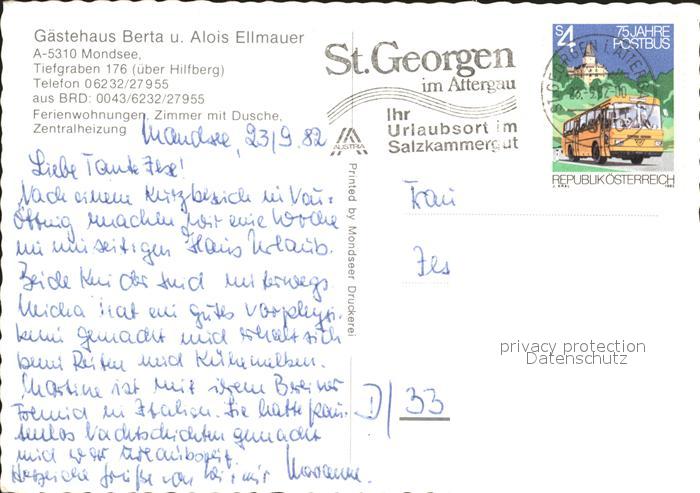 Gästehaus Berta u. Alois Ellmauer
A-5310 Mondsee,
Tiefgraben 176 (über Hilfberg)
Telefon 06232/27955
aus BRD: 0043/6232/27955
Ferienwohnungen, Zimmer mit Dusche,
Zentralheizung
St. Georgen
im Attergau
Ihr
Urlaubsort im
Salzkammergut
AUSTRIA
S4
75 JAHRE
POSTBUS
REPUBLIK ÖSTERREICH
Mondsee, 23/9. 82
Liebe Tante Ilse!
Nach einem Kurzbesuch in
machen wir eine Woche
im Haus Urlaub.
Beide Kinder sind unterwegs.
Micha hat ein gutes Vorphysi-
kum gemacht und erholt sich
beim Reiten und Kühemelken.
Martina ist mit ihrem
Freund in Italien. Sie hatte pau-
senlos Nachtschichten gemacht
und war urlaubsreif.
Herzliche Grüße von
Printed by Mondseer Druckerei
Frau
Ilse
D/ 33
privacy protection
Datenschutz